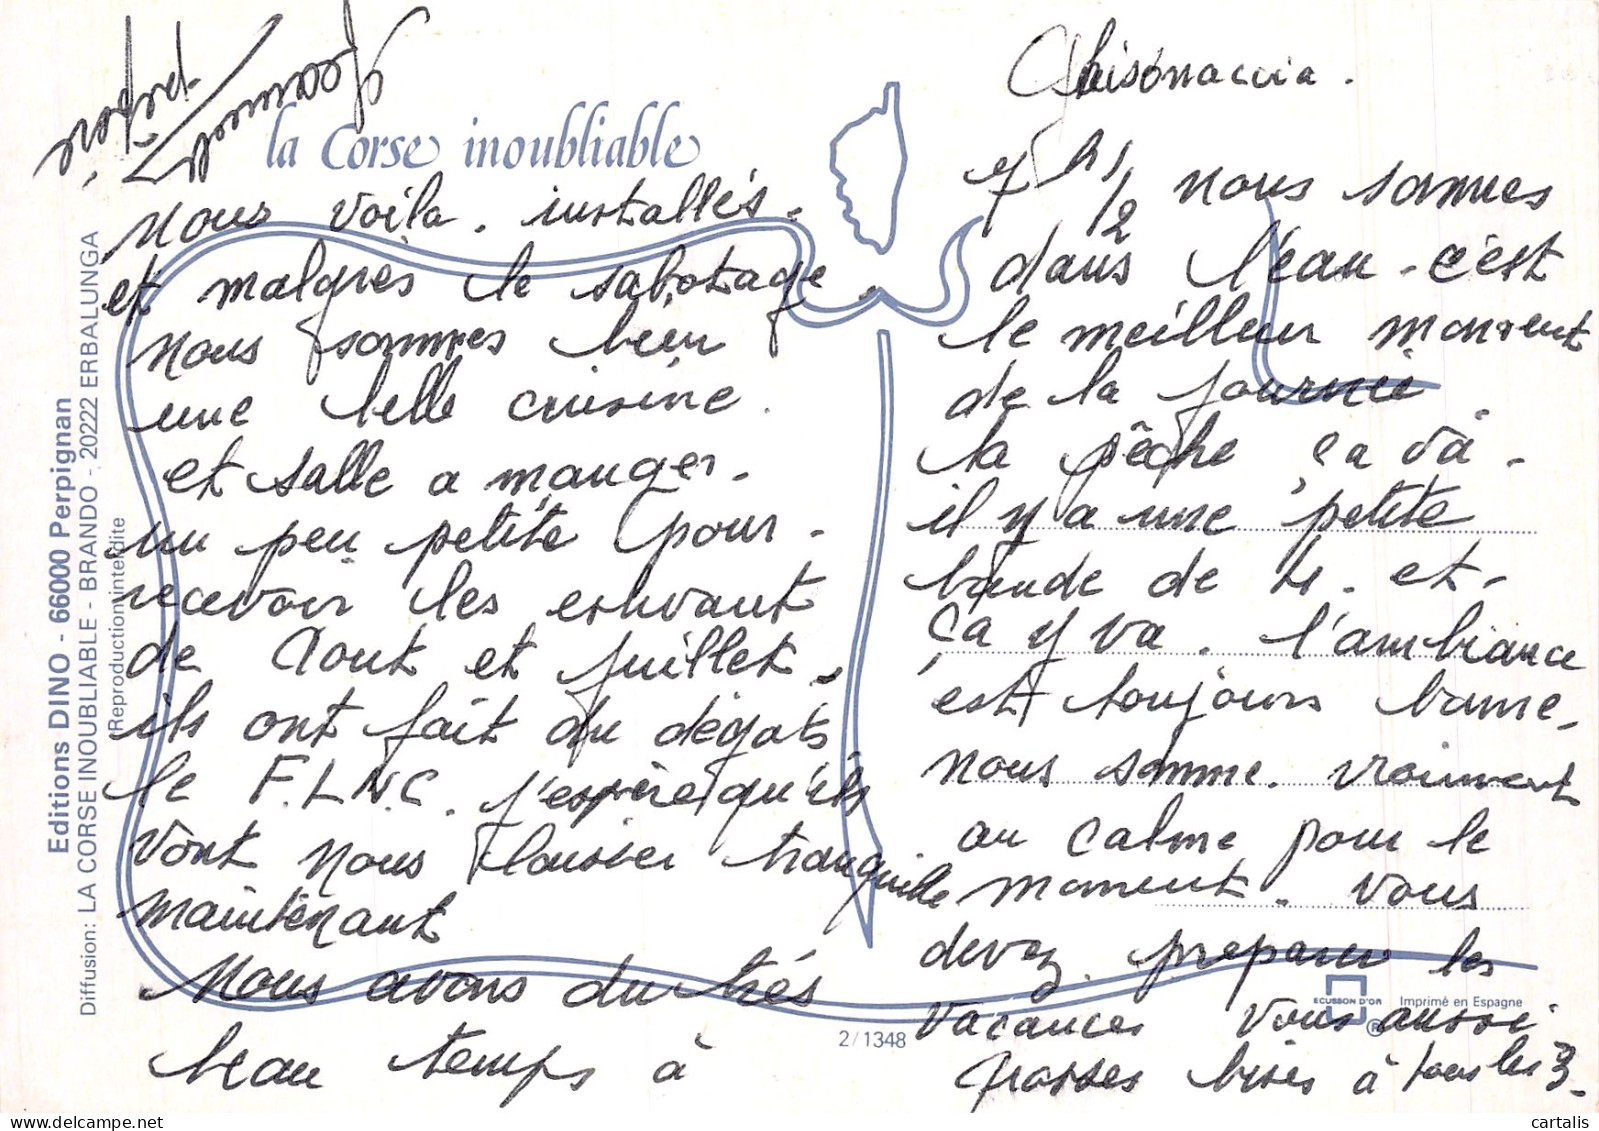 la Corse inoubliable
Ghisonaccia.
Nous voila. installés.
et malgrès le sabotage.
nous sommes bien
une belle cuisine.
et salle a manger.
un peu petite pour.
recevoir les
de Aout et Juillet.
ils ont fait du dégats
le F.L.N.C. j'espère qu'ils
vont nous laisser tranquille
maintenant
Nous avons du très
beau temps à
7 h 1/2 nous sommes
dans l'eau. c'est
le meilleur moment
de la journée.
la pêche ça và.
il y a une petite
bande de 4. et.
ça y va. l'ambiance
est toujours bonne.
nous somme. vraiment
au calme pour le
moment. vous
devez. preparer les
vacances vous aussi
grosses bises à tous les 3.
Jeannot
pépone
Editions DINO - 66000 Perpignan
Diffusion: LA CORSE INOUBLIABLE - BRANDO - 20222 ERBALUNGA
(Reproduction interdite
2/1348
ECUSSON D'OR
®
Imprimé en Espagne
cartalis